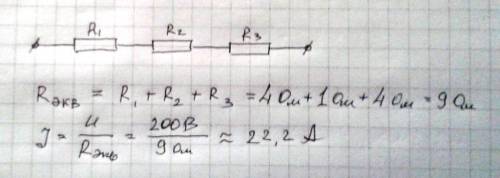 R₁ R₂ R₃
Rэкв = R₁ + R₂ + R₃ = 4 Ом + 1 Ом + 4 Ом = 9 Ом
J = U/Rэкв = 200В/9 Ом ≈ 22,2 А